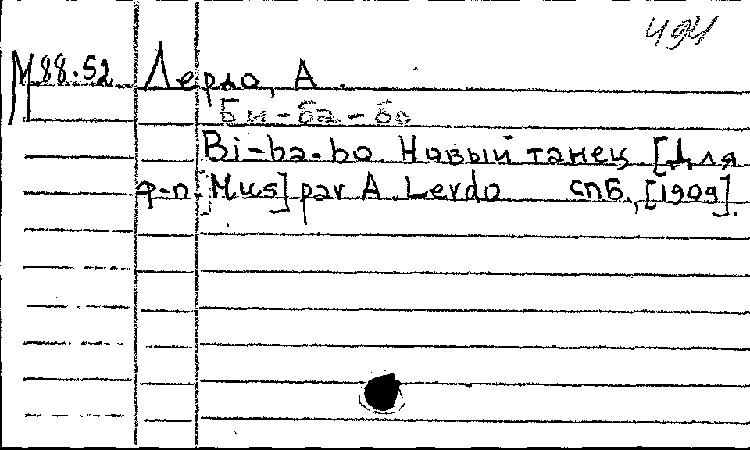 494
М 88.52 Лердо, А.
Би-ба-бо
Bi-ba-bo. Новый танец. [Для
ф-п.] [Mus] par A. Lerdo СПБ., [1909].